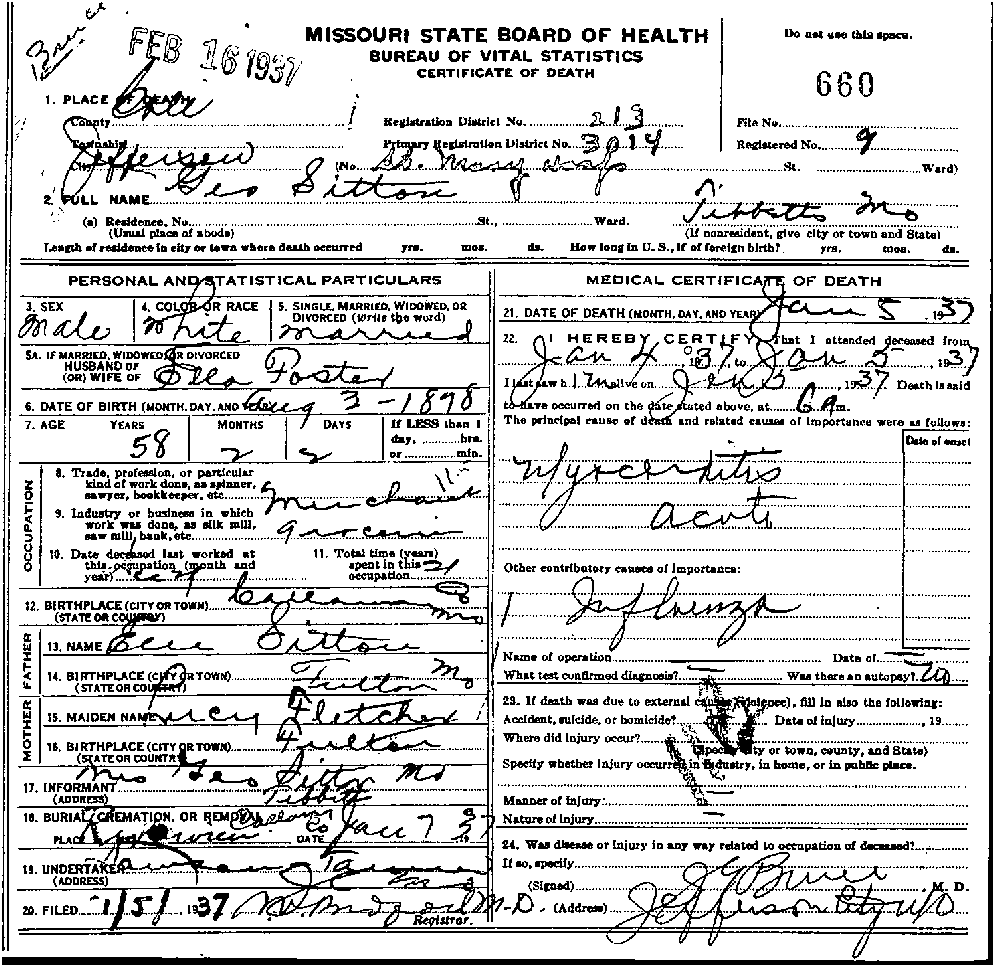 Bruce
FEB 16 1937
MISSOURI STATE BOARD OF HEALTH
BUREAU OF VITAL STATISTICS
CERTIFICATE OF DEATH
Do not use this space.
660
1. PLACE OF DEATH
County Cole
Registration District No. 213
File No.
Township
Primary Registration District No. 3014
Registered No. 9
City Jefferson (No. St. Mary Hosp St. Ward)
2. FULL NAME Geo Sitton
(a) Residence, No. St., Ward. Tibbetts Mo
(Usual place of abode) (If nonresident, give city or town and State)
Length of residence in city or town where death occurred yrs. mos. ds. How long in U. S., if of foreign birth? yrs. mos. ds.
PERSONAL AND STATISTICAL PARTICULARS
3. SEX Male
4. COLOR OR RACE White
5. SINGLE, MARRIED, WIDOWED, OR DIVORCED (write the word) married
5A. IF MARRIED, WIDOWED, OR DIVORCED
HUSBAND OF
(OR) WIFE OF Ella Foster
6. DATE OF BIRTH (MONTH, DAY, AND YEAR) Aug 3 - 1898
7. AGE YEARS MONTHS DAYS If LESS than 1 day, hrs. or min.
58 2 2
OCCUPATION
8. Trade, profession, or particular kind of work done, as spinner, sawyer, bookkeeper, etc. Merchant
9. Industry or business in which work was done, as silk mill, saw mill, bank, etc.
10. Date deceased last worked at this occupation (month and year)
11. Total time (years) spent in this occupation 21
12. BIRTHPLACE (CITY OR TOWN) Callaway Co
(STATE OR COUNTRY) Mo
FATHER
13. NAME Sitton
14. BIRTHPLACE (CITY OR TOWN) Fulton Mo
(STATE OR COUNTRY)
MOTHER
15. MAIDEN NAME Lucy Fletcher
16. BIRTHPLACE (CITY OR TOWN) Fulton
(STATE OR COUNTRY) Mo
17. INFORMANT Mrs Geo Sitton
(ADDRESS) Tibbetts
18. BURIAL, CREMATION, OR REMOVAL
PLACE Co DATE Jan 7 37
19. UNDERTAKER
(ADDRESS) J C
20. FILED 1/5/ 1937 M.D.
Registrar.
MEDICAL CERTIFICATE OF DEATH
21. DATE OF DEATH (MONTH, DAY, AND YEAR) Jan 5, 1937
22. I HEREBY CERTIFY, That I attended deceased from
Jan 4 1937, to Jan 5, 1937
I last saw him alive on Jan 5, 1937 Death is said
to have occurred on the date stated above, at 6 am.
The principal cause of death and related causes of importance were as follows:
Date of onset
Myocarditis
acute
Other contributory causes of importance:
Influenza
Name of operation Date of
What test confirmed diagnosis? Was there an autopsy? no
23. If death was due to external causes (violence), fill in also the following:
Accident, suicide, or homicide? Date of injury , 19
Where did injury occur?
(Specify city or town, county, and State)
Specify whether injury occurred in industry, in home, or in public place.
Manner of injury
Nature of injury
24. Was disease or injury in any way related to occupation of deceased?
If so, specify
(Signed) J G Bruce M. D.
(Address) Jefferson City Mo